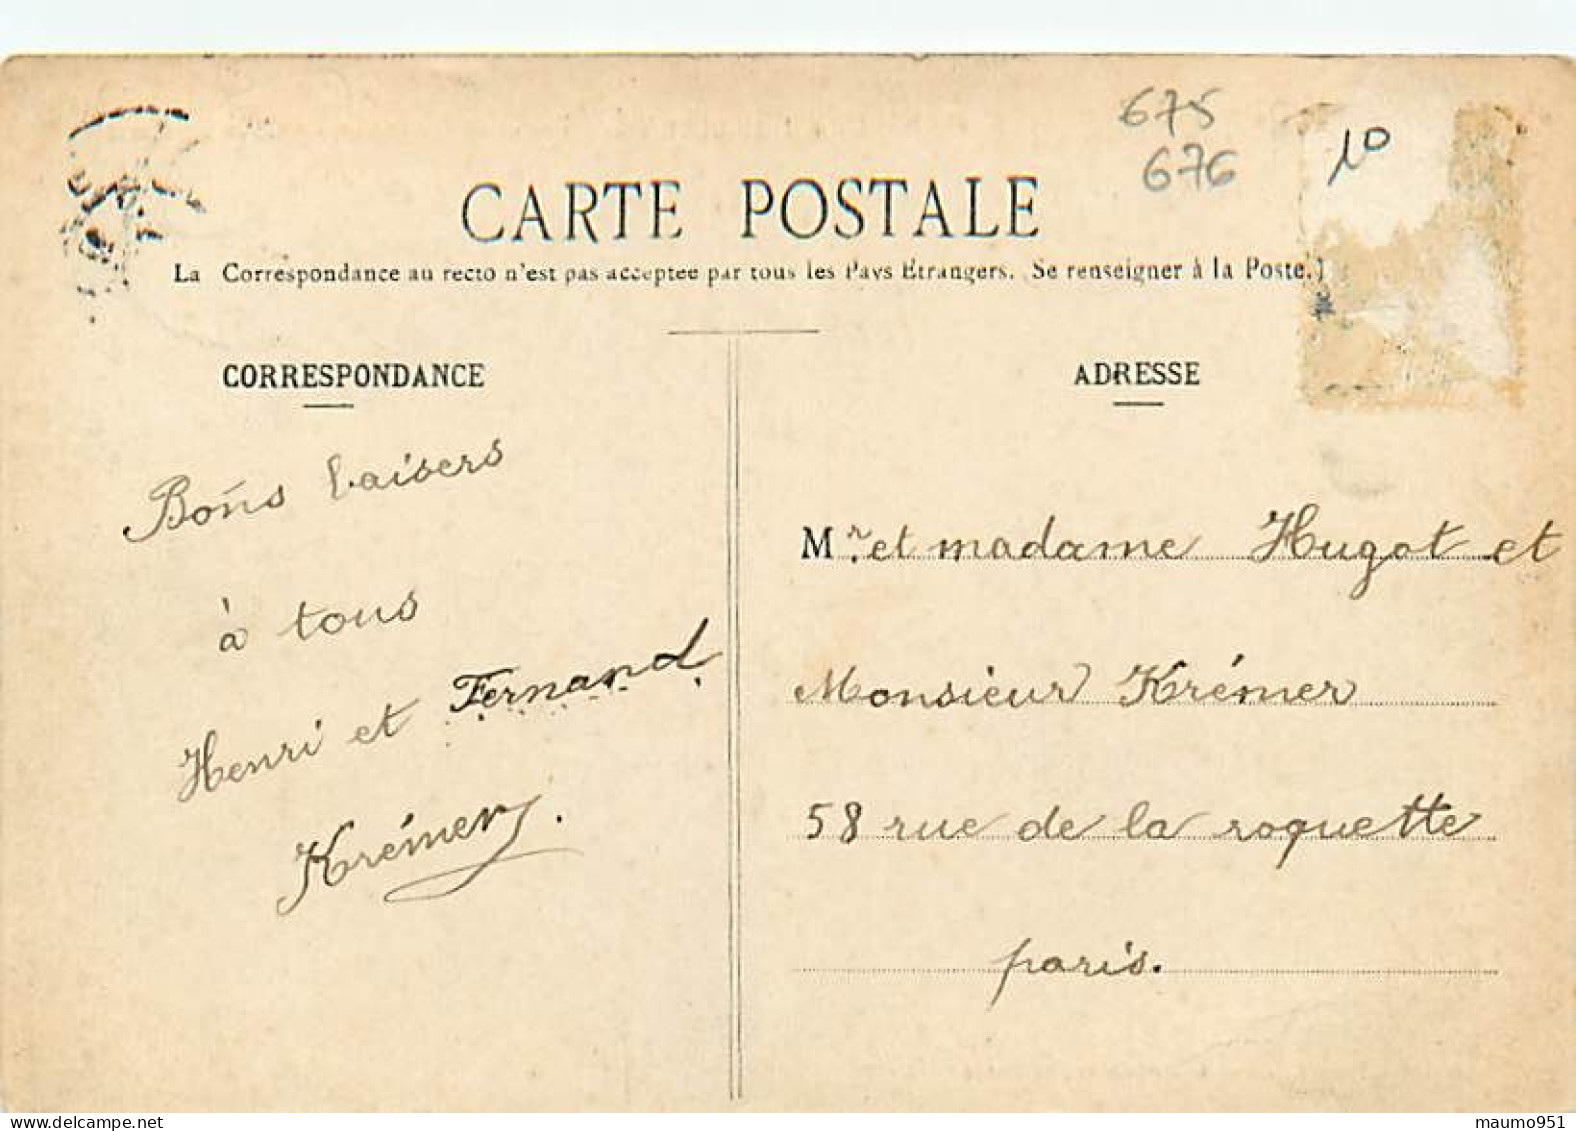 675
676
10
CARTE POSTALE
La Correspondance au recto n'est pas acceptée par tous les Pays Étrangers. (Se renseigner à la Poste.)
CORRESPONDANCE
Bons baisers
à tous
Henri et Fernand.
Krémer.
ADRESSE
Mr. et madame Hugot et
Monsieur Krémer
58 rue de la roquette
paris.
delcampe.net
maumo951